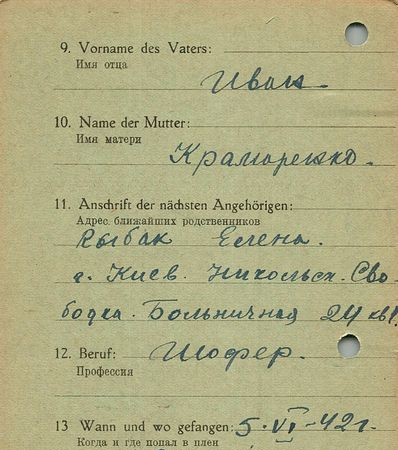 9. Vorname des Vaters:
Имя отца
Иван.
10. Name der Mutter:
Имя матери
Крамаренко.
11. Anschrift der nächsten Angehörigen:
Адрес ближайших родственников
Рыбак Елена.
г. Киев. Никольск. Сво-
бодка. Больничная 24 кв1.
12. Beruf: Шофер.
Профессия
13 Wann und wo gefangen: 5. VI-42г.
Когда и где попал в плен